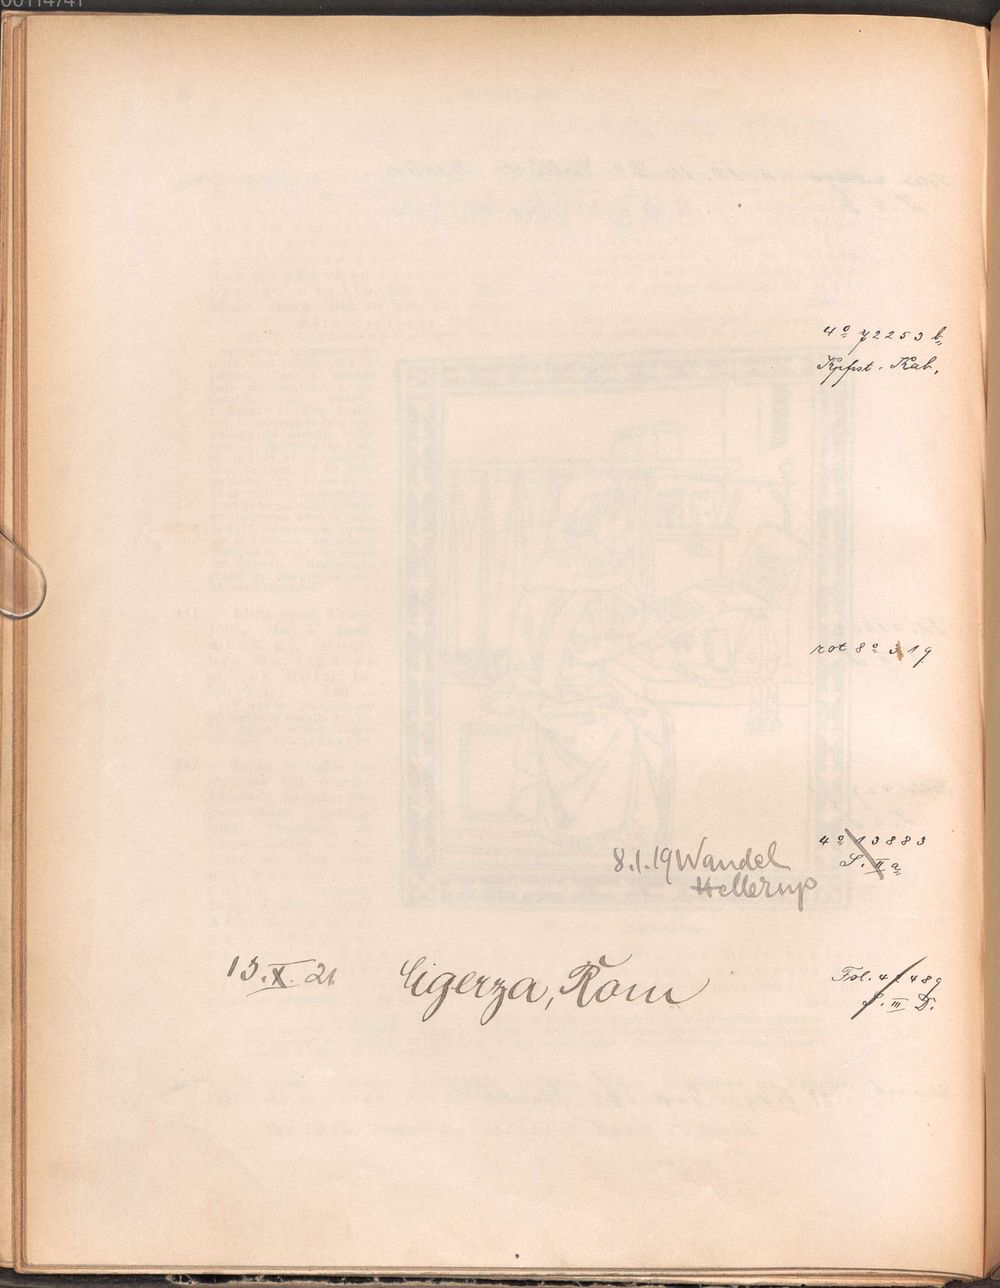 00114741
4º y2253 b,
Kpfst. Kab.
rot 8º 319
8.1.19 Wandel
Hellerup
4º 13883
S. II a,
13.X.21. Olgerza, Rom
Fol. 42489
S. III D.